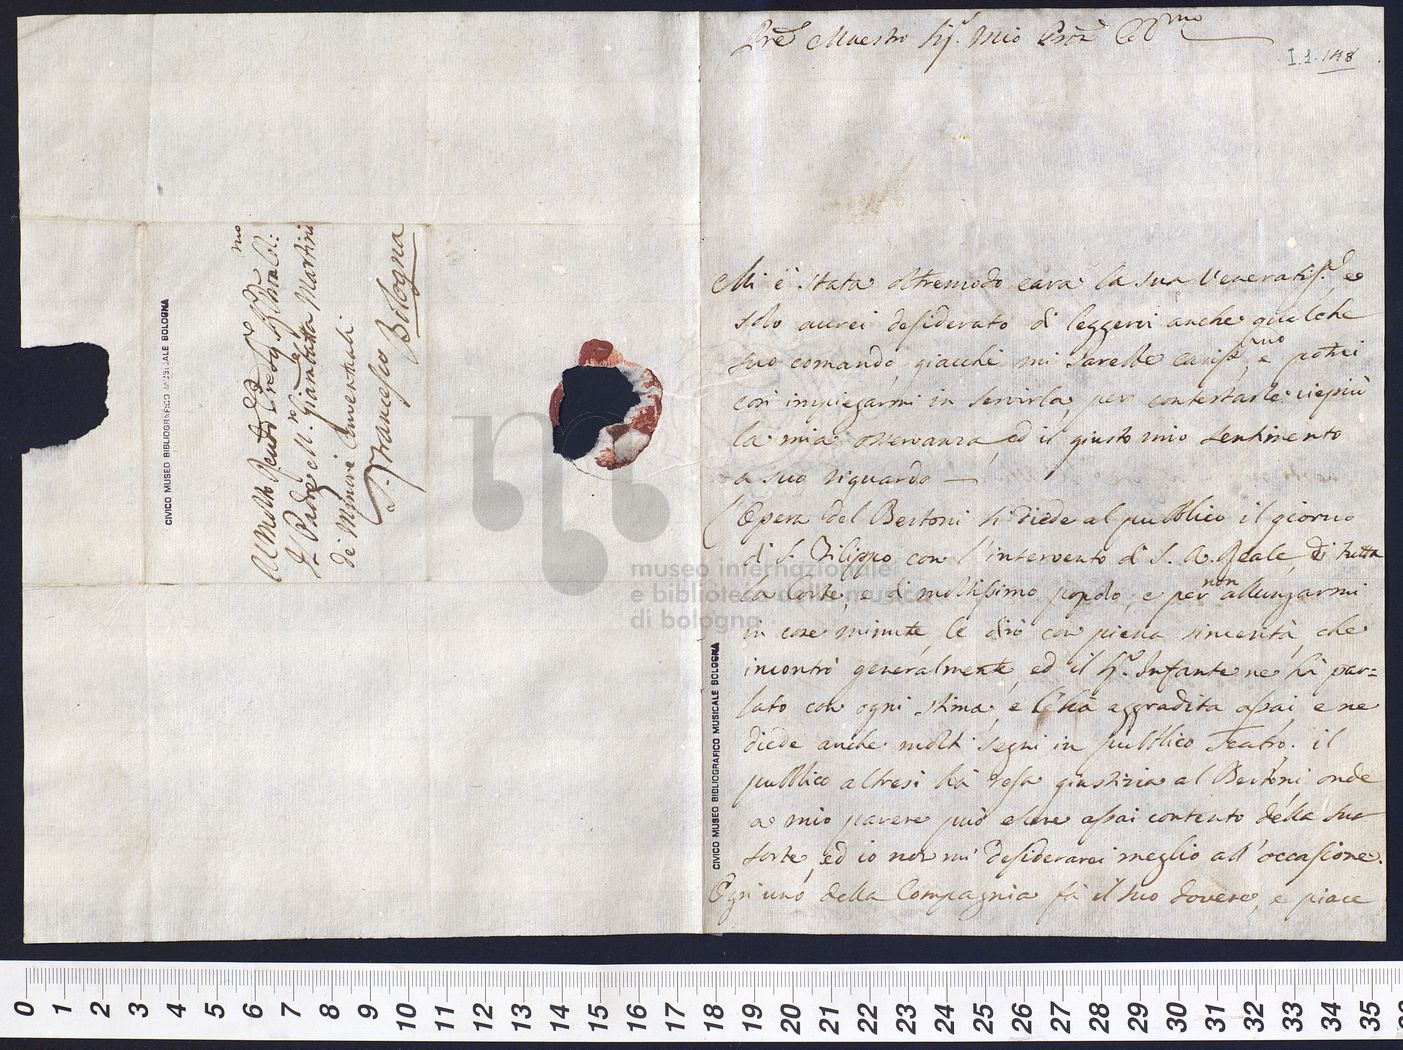 Pre. Maestro Sig.r Mio Pron. Col.mo
I.1.148
Mi è stata oltremodo cara la sua Veneratiss.a e
solo avrei desiderato di leggervi anche qualche
suo comando, giacchè mi sarebbe cariss.mo, e potrei
così impiegarmi in servirla, per contestarle vieppiù
la mia osservanza, ed il giusto mio sentimento
a suo riguardo —
L'Opera del Bertoni si diede al pubblico il giorno
di S. Filippo con l'intervento di S. A. Reale, di tutta
la Corte, e di moltissimo popolo, e per non allungarmi
in cose minute, le dirò con piena sincerità, che
incontrò generalmente, ed il Sig.r Infante ne hà par=
lato con ogni stima, e l'hà aggradita assai, e ne
diede anche molti segni in pubblico Teatro. il
pubblico altresì hà resa giustizia al Bertoni, onde
a mio parere può essere assai contento della sua
sorte, ed io non mi desiderarei meglio all'occasione.
Ogni uno della Compagnia fà il suo dovere, e piace
Al Molto Rendo
Il Padre M.ro Giambatta Martini
de Minori Conventuali
S. Francesco Bologna
CIVICO MUSEO BIBLIOGRAFICO MUSICALE BOLOGNA
CIVICO MUSEO BIBLIOGRAFICO MUSICALE BOLOGNA
museo internazionale
e biblioteca della musica
di bologna
0 1 2 3 4 5 6 7 8 9 10 11 12 13 14 15 16 17 18 19 20 21 22 23 24 25 26 27 28 29 30 31 32 33 34 35